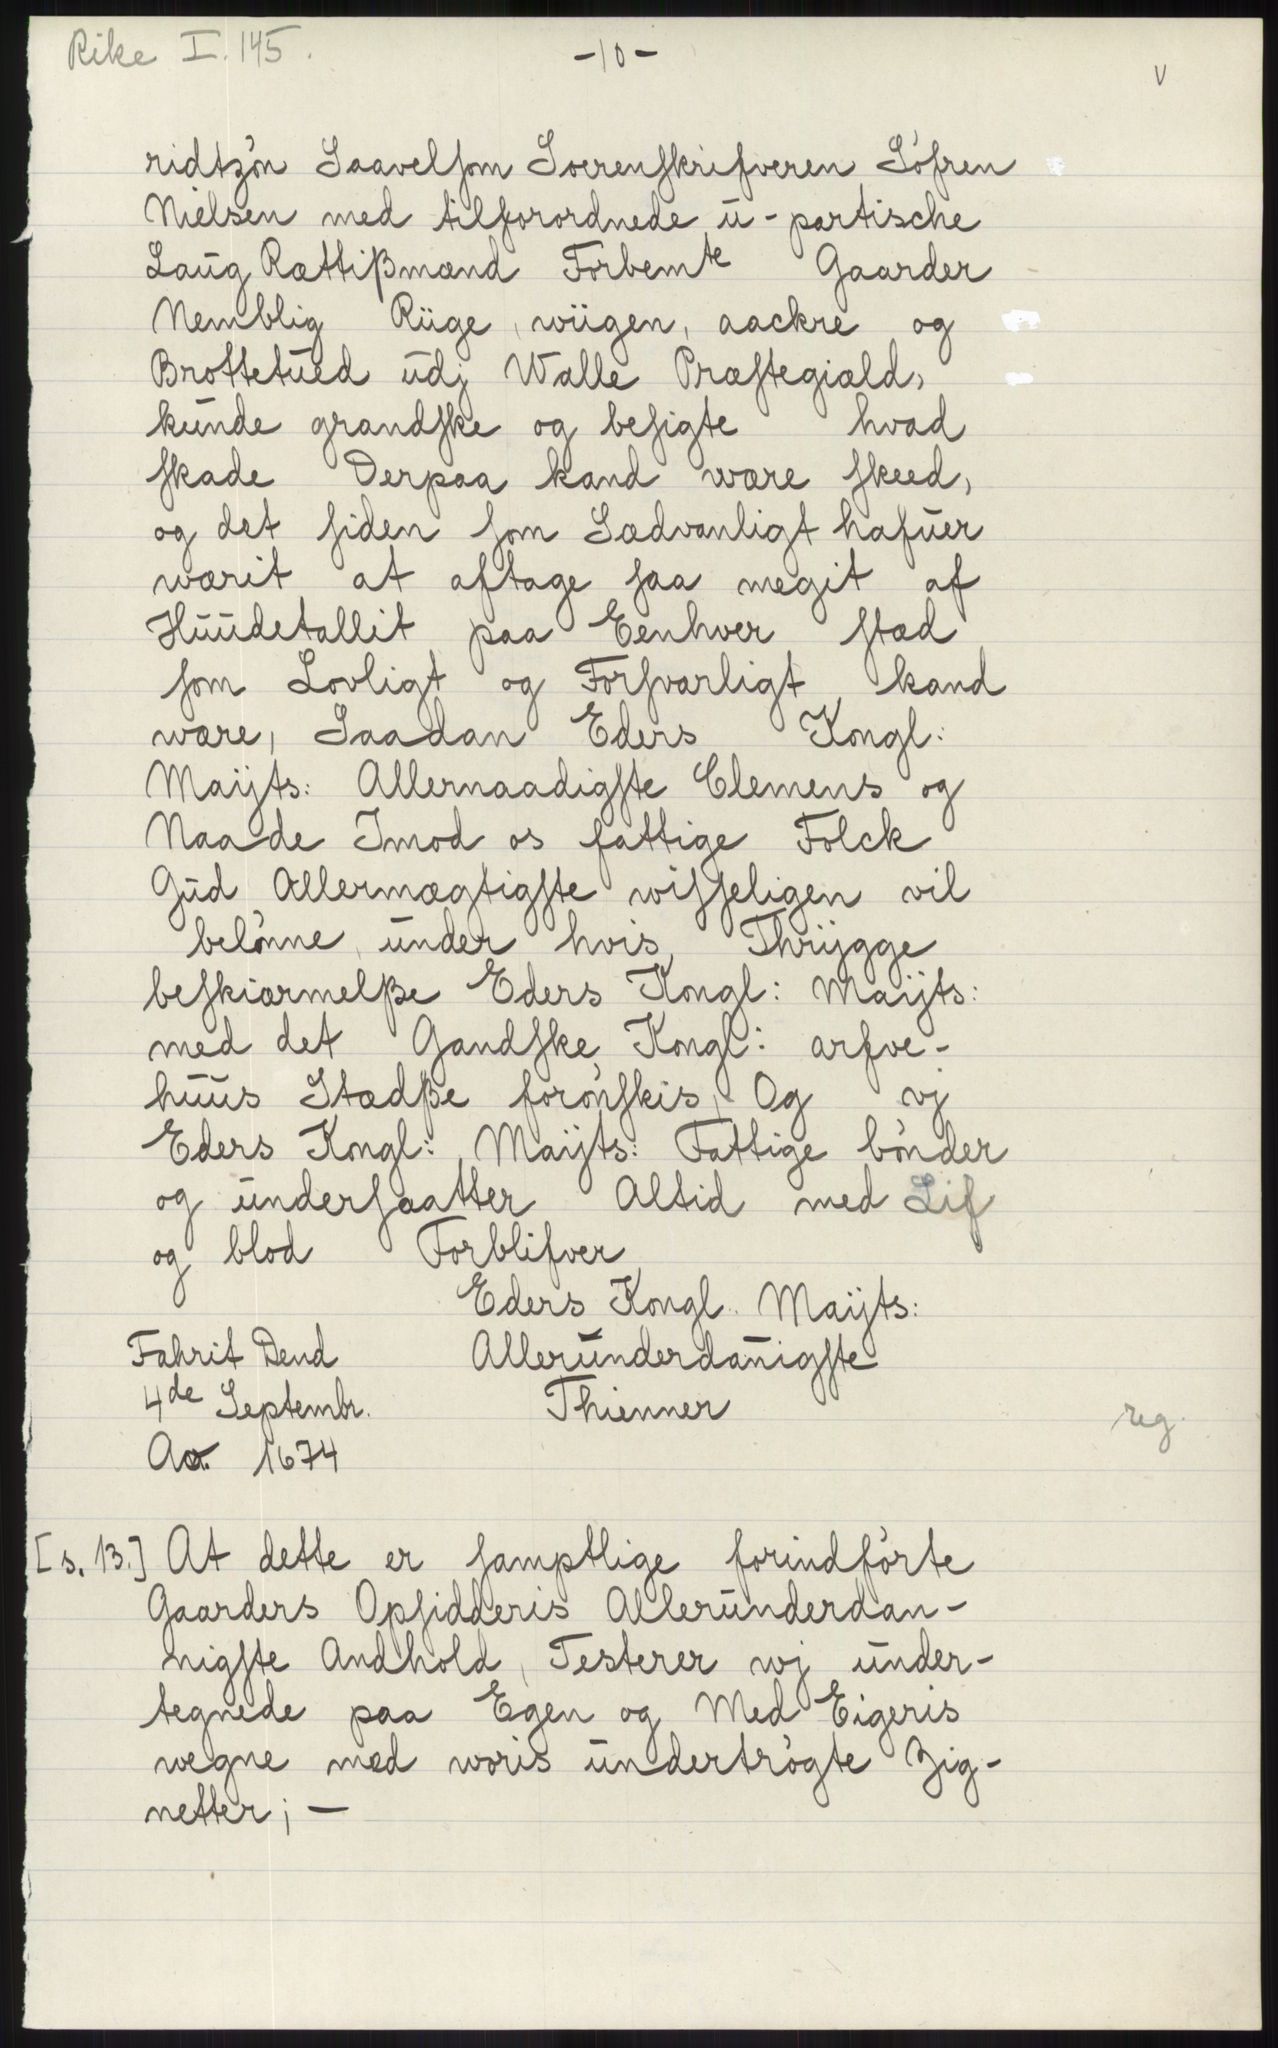 Rike I. 145.
-10-
v
ridtzön Saavelsom Soerenskrifveren Söfren
Nielsen med tilforordnede u-partische
Laug Rættißmænd Forbemte Gaarder
Nemblig Riige, wiigen, aackre og
Brottetued udj Walle Præstegiæld,
kunde grandske og besigte hvad
skade Derpaa kand wære skeed,
og det siden som Sædvanligt hafuer
wærit at aftage saa megit af
Huudetallit paa Eenhver stæd
som Lovligt og Forsvarligt kand
wære, Saadan Eders Kongl:
Maijts: Allernaadigste Clemens og
Naade Imod os fattige Folck
Gud Allermægtigste wisseligen vil
belönne, under hvis, Thrygge
beskiærmelße Eders Kongl: Maijts:
med det Gandske Kongl: arfve-
huus Stædße forönskis, Og vj
Eders Kongl: Maijts: Fattige bönder
og undersaatter Altid med Lif
og blod Forblifver
Eders Kongl. Maijts:
Fahrit Dend Allerunderdanigste
4de Septembr. Thienner
reg.
Ao. 1674
[s. 13.] At dette er samptlige forindförte
Gaarders Opsidderis Allerunderdan-
nigste Andhold, Testerer wj under-
tegnede paa Egen og Med Eigeris
wegne med woris undertrögte Zig-
netter; -